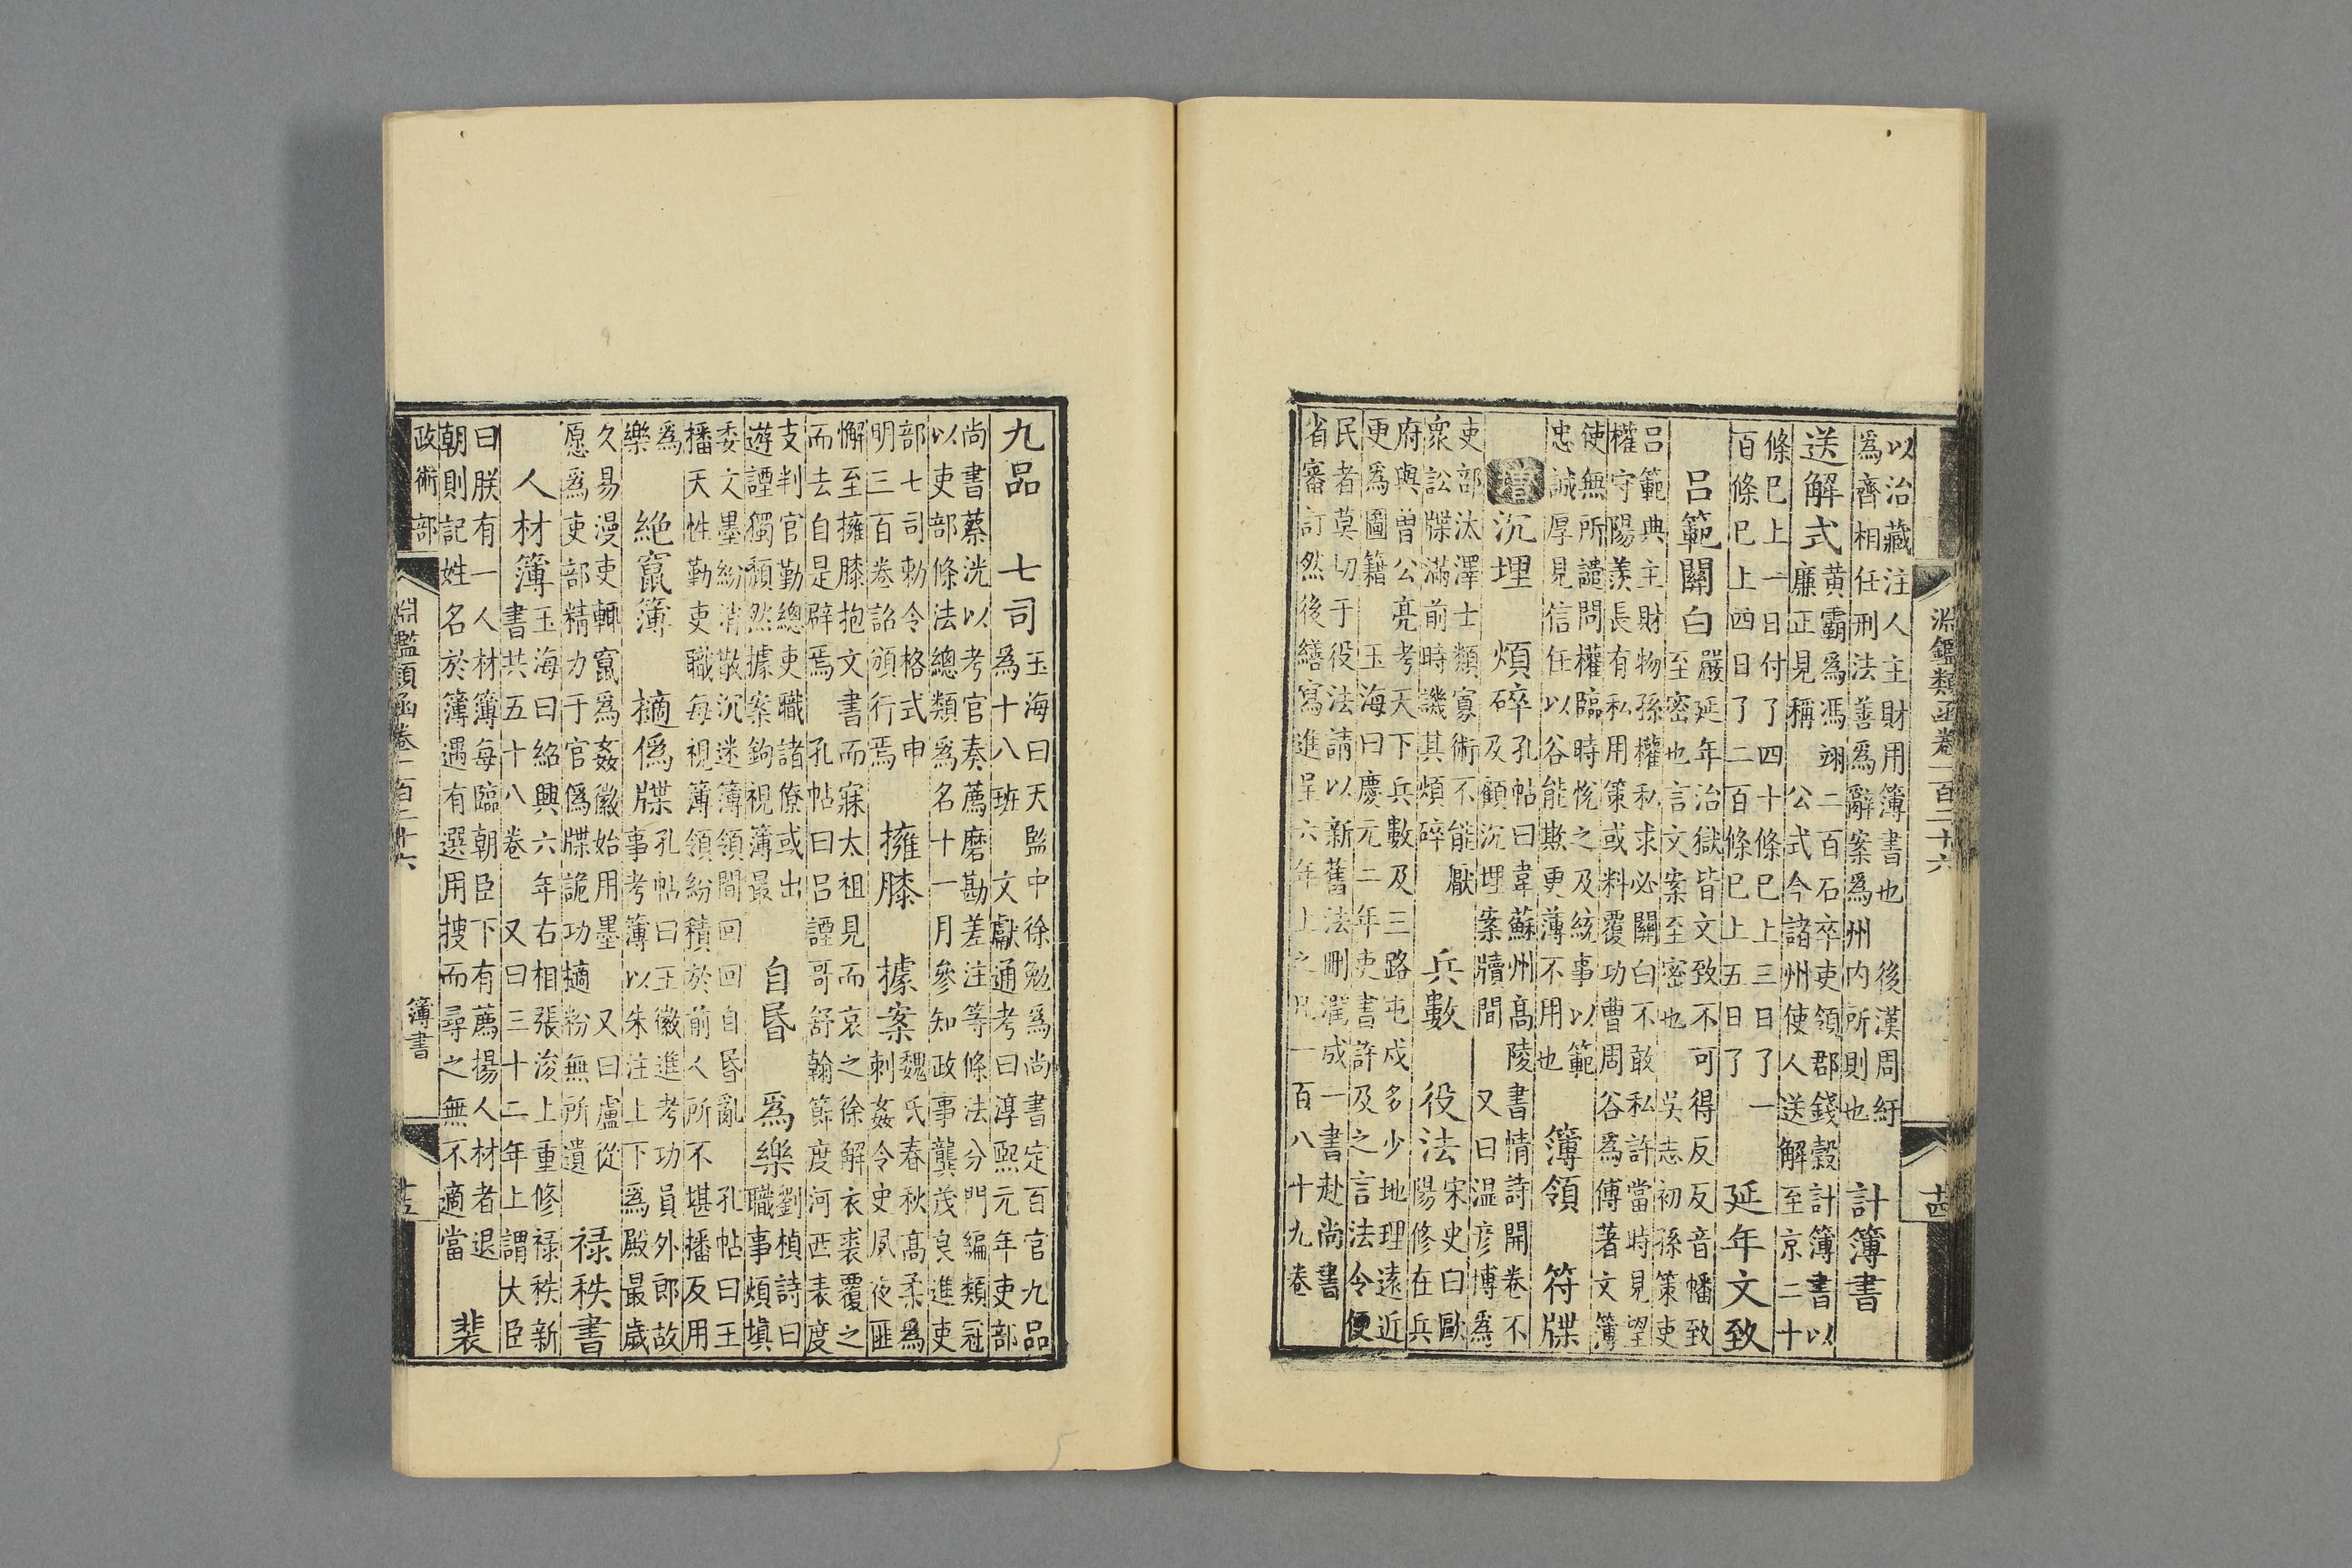 淵鑑類函卷一百二十六 十四
以治藏注人主財用簿書也 後漢周紆
爲齊相任刑法善爲辭案爲州内所則也
計簿書
送解式
黄霸爲馮翊二百石卒吏領郡錢穀計簿書以
廉正見稱 公式令諸州使人送解至京二十
條巳上一日付了四十條巳上三日了一
百條巳上四日了二百條巳上五日了
延年文致
呂範關白
嚴延年治獄皆文致不可得反反音幡致
至密也言文案至密也 吳志初孫策吏
呂範典主財物孫權私求必關白不敢私許當時見望
權守陽羨長有私用策或料覆功曹周谷爲傅著文簿
使無所譴問權臨時悅之及統事以範
忠誠厚見信任以谷能欺更薄不用也
簿領 符牒
沉埋 煩碎
孔帖曰韋蘇州高陵書情詩開卷不
及顧沉埋案牘間 又曰温彦博爲
吏部汰澤士類寡術不能厭
衆訟牒滿前時譏其煩碎
兵數 役法
宋史曰歐
陽修在兵
府與曾公亮考天下兵數及三路屯戍多少地理遠近
更爲圖籍 玉海曰慶元二年吏書許及之言法令便
民者莫切于役法請以新舊法刪潤成一書赴尚書
省審訂然後繕寫進呈六年上之凡一百八十九卷
九品 七司
玉海曰天監中徐勉爲尚書定百官九品
爲十八班 文獻通考曰淳熙元年吏部
尚書蔡洸以考官奏薦磨勘差注等條法分門編類冠
以吏部條法總類爲名十一月參知政事龔茂良進吏
部七司勅令格式申
明三百卷詔頒行焉
擁膝 據案
魏氏春秋高柔爲
刺姦令史夙夜匪
懈至擁膝抱文書而寐太祖見而哀之徐解衣裘覆之
而去自是辟焉 孔帖曰呂諲哥舒翰節度河西表度
支判官勤總吏職諸僚或出
遊諲獨頹然據案鉤視簿最
自昏 爲樂
劉楨詩曰
職事煩填
委文墨紛消散沉迷簿領間回回自昏亂 孔帖曰王
播天性勤吏職每視簿領紛積於前人所不堪播反用
爲
樂
絶竄簿 擿僞牒
孔帖曰王徽進考功員外郎故
事考簿以朱注上下爲殿最歲
久易漫吏輒竄爲姦徽始用墨 又曰盧從
愿爲吏部精力于官僞牒詭功擿粉無所遺
祿秩書
人材簿
玉海曰紹興六年右相張浚上重修祿秩新
書共五十八卷 又曰三十二年上謂大臣
曰朕有一人材簿每臨朝臣下有薦揚人材者退
朝則記姓名於簿遇有選用搜而尋之無不適當
裴
政術部 淵鑑類函卷一百二十六 簿書 十五